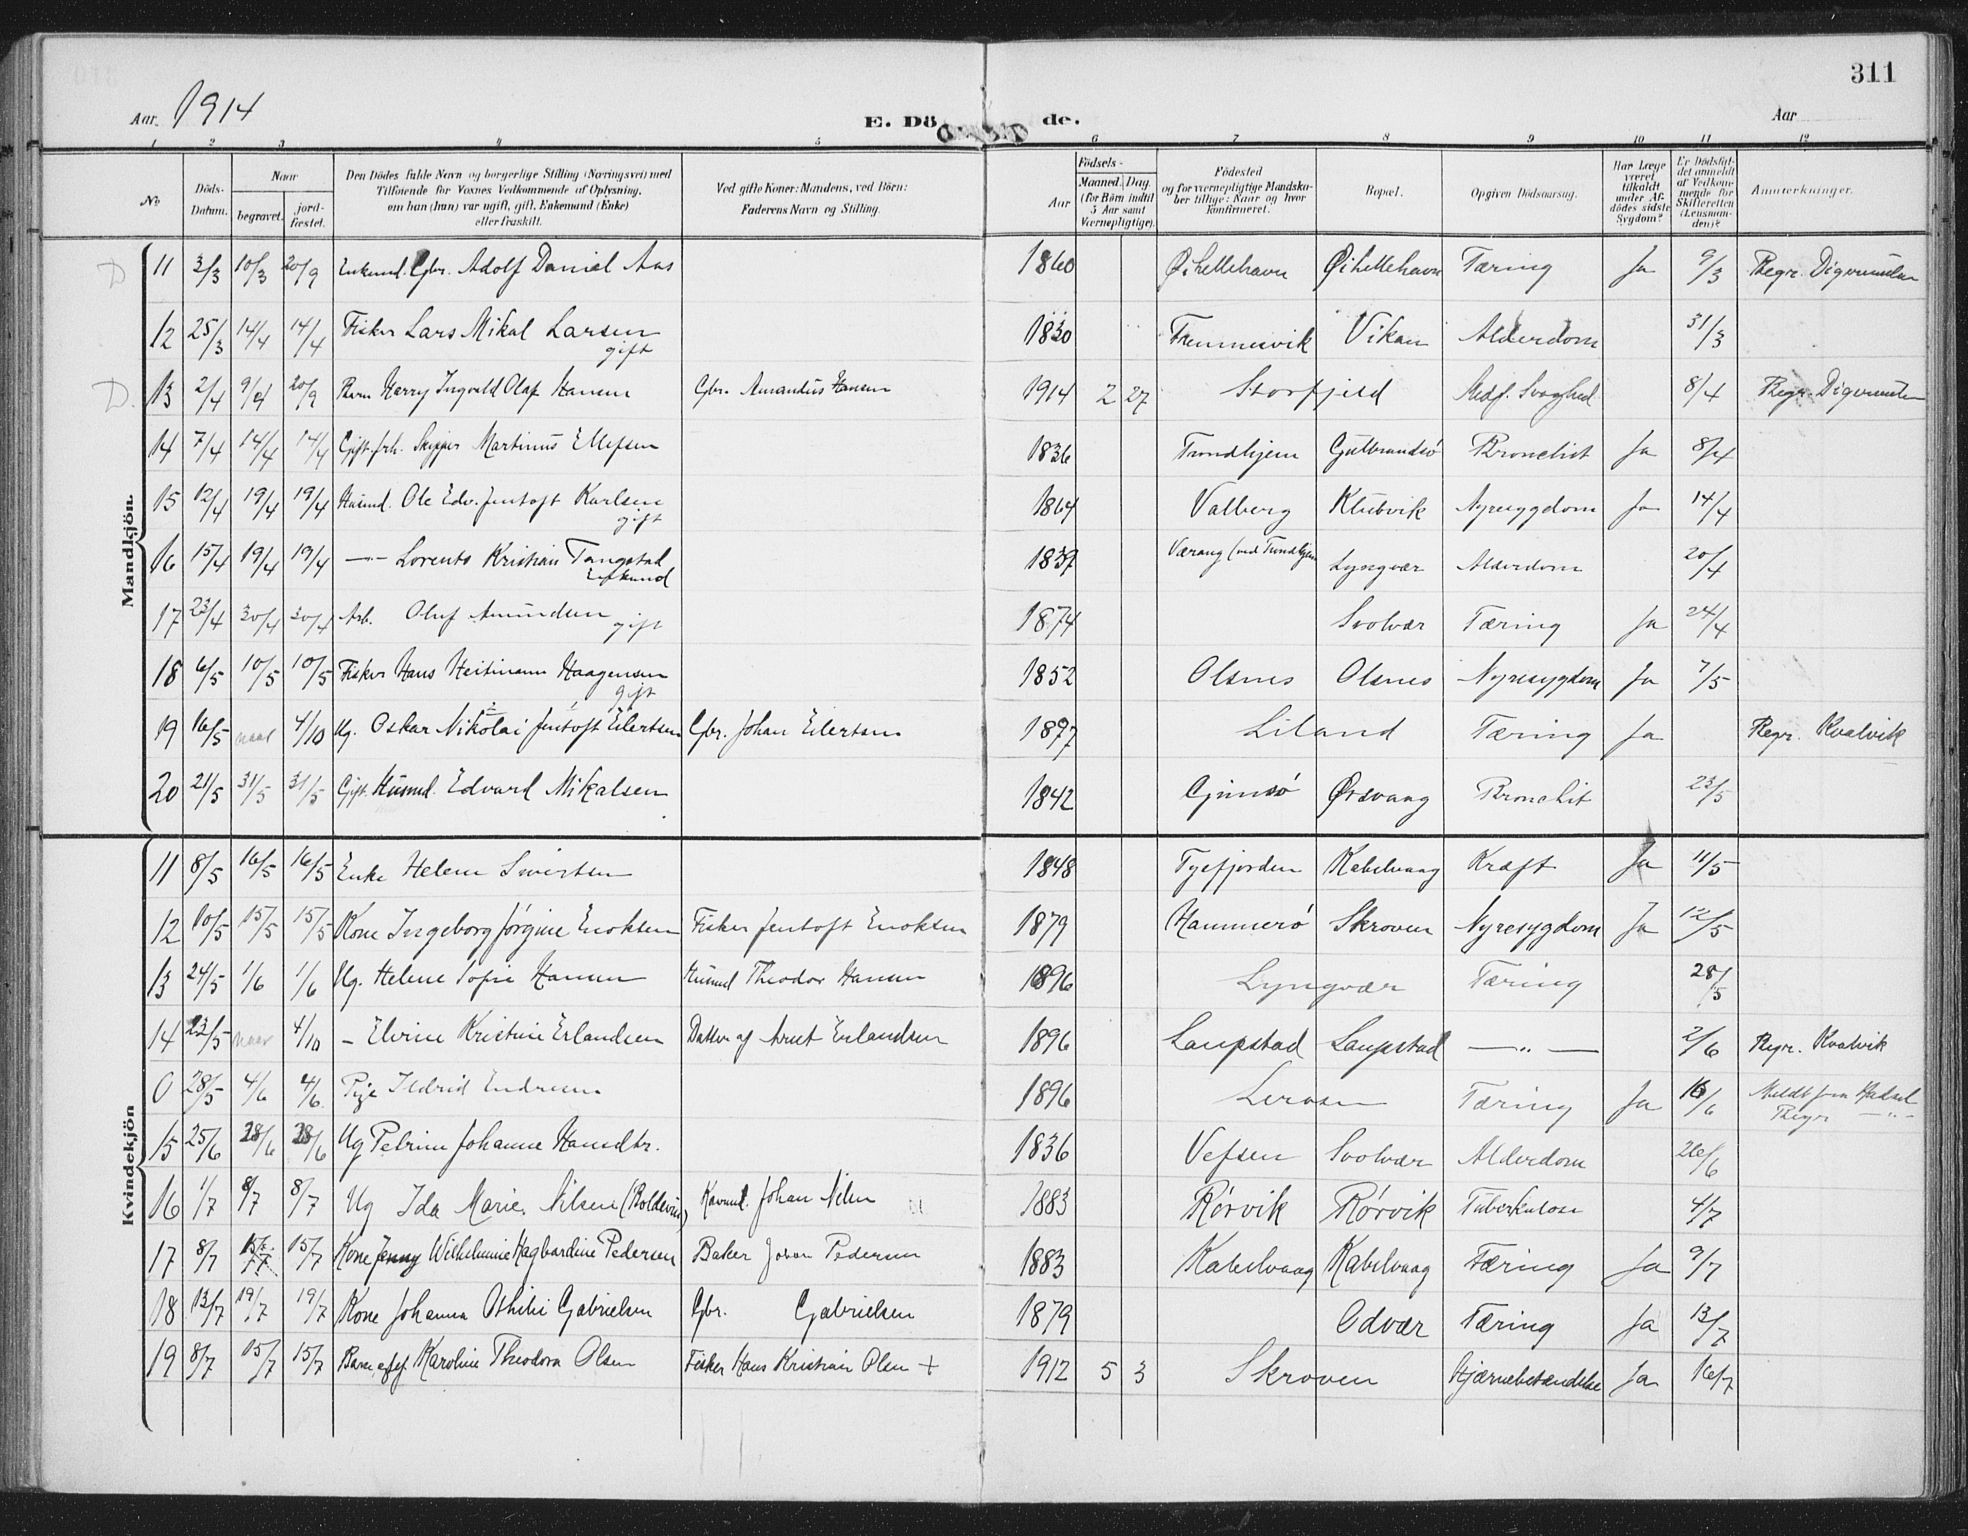 311
Aar. 1914 E. Dö de. Aar
1 2 3 4 5 6 7 8 9 10 11 12
No Döds-Datum. Naar begravet. jord-fæstet. Den Dödes fulde Navn og borgerlige Stilling (Næringsvei) med Tilföiende for Voxnes Vedkommende af Oplysning, om han (hun) var ugift, gift, Enkemand (Enke) eller fraskilt. Ved gifte Koner: Mandens, ved Börn: Faderens Navn og Stilling. Födsels- Aar Maaned. Dag (for Börn indtil 5 Aar samt Værnepligtige). Födested og for værnepligtige Mandskaber tillige: Naar og hvor konfirmeret. Bopæl. Opgiven Dödsaarsag. Har Læge været tilkaldt under Afdödes sidste Sygdom? Er Dödsfaldet anmeldt af Vedkommende for Skifteretten (Lensmanden)? Anmærkninger.
Mandkjön.
D 11 3/3 10/3 20/9 Enkemd. Gbr. Adolf Daniel Aas 1860 Øihellehavn Øihellehavn Tæring Ja 9/3 Begr. Digermulen
12 25/3 14/4 14/4 Fisker Lars Mikal Larsen gift 1830 Vikan Alderdom 31/3
D. 13 2/4 9/4 20/9 Barn Harry Ingvald Olaf Hansen Gbr. Amandus Hansen 1914 2 27 Storfjord Medf. Svaghed 8/4 Begr. Digermulen
14 7/4 14/4 14/4 Gift. frh. Skipper Martinus Ellefsen 1836 Trondhjem Gulbrandsö Bronchit Ja 8/4
15 12/4 19/4 19/4 Husmd. Ole Edv. Jentoft Karlsen gift 1864 Valberg Klubvik Nyresygdom Ja 14/4
16 15/4 19/4 19/4 —"— Lorents Kristian Tangstad Enkemd 1839 (ved Trondhjem Lyngvær Alderdom 20/4
17 23/4 30/4 30/4 Arb. Oluf Amundsen gift 1874 Svolvær Tæring Ja 24/4
18 6/5 10/5 10/5 Fisker Hans Heitmann Haagensen gift 1852 Olsnes Olsnes Nyresygdom Ja 7/5
19 16/5 naar 4/10 Ug. Oskar Nikolai Jentoft Eilertsen Gbr. Johan Eilertsen 1897 Liland Tæring Ja Begr. Kvalvik
20 21/5 31/5 31/5 Gift. Husmd. Edvard Mikalsen 1842 Gimsö Ørsvaag Bronchit 23/5
Kvindekjön
11 8/5 16/5 16/5 Enke Helene Sivertsen 1848 Tysfjorden Kabelvaag Kræft Ja 11/5
12 10/5 15/5 15/5 Kone Ingeborg Jörgine Enoksen Fisker Jentoft Enoksen 1879 Hammerö Skroven Nyresygdom Ja 12/5
13 24/5 1/6 1/6 Ug. Helene Sofie Hansen Husmd Theodor Hansen 1896 Lyngvær Tæring 28/5
14 23/5 naar 4/10 — Elvine Kristine Erlandsen Datter af Arnt Erlandsen 1896 Laupstad Laupstad —"— 2/6 Begr. Kvalvik
0 28/5 4/6 4/6 Pige Ildrid Endresen 1896 Tæring Ja 16/6 Meldt fra Hadsel Begr —"—
15 25/6 28/6 28/6 Ug Petrine Johanne Hansdtr. 1836 Vefsen Svolvær Alderdom 26/6
16 1/7 8/7 8/7 Ug Ida Marie Nilsen Johan Nilsen 1883 Rörvik Rörvik Tuberkulose 4/7
17 8/7 15/7 15/7 Kone Jenny Wilhelmine Hagbardine Pedersen Baker Johan Pedersen 1883 Kabelvaag Kabelvaag Tæring Ja 9/7
18 13/7 19/7 19/7 Kone Johanna Othilie Gabrielsen Gbr. Gabrielsen 1879 Odvær Tæring Ja 13/7
19 8/7 15/7 15/7 Barn Karoline Theodora Olsen Fisker Hans Kristian Olsen + 1912 5 3 Skroven Hjærnebetændelse Ja 16/7